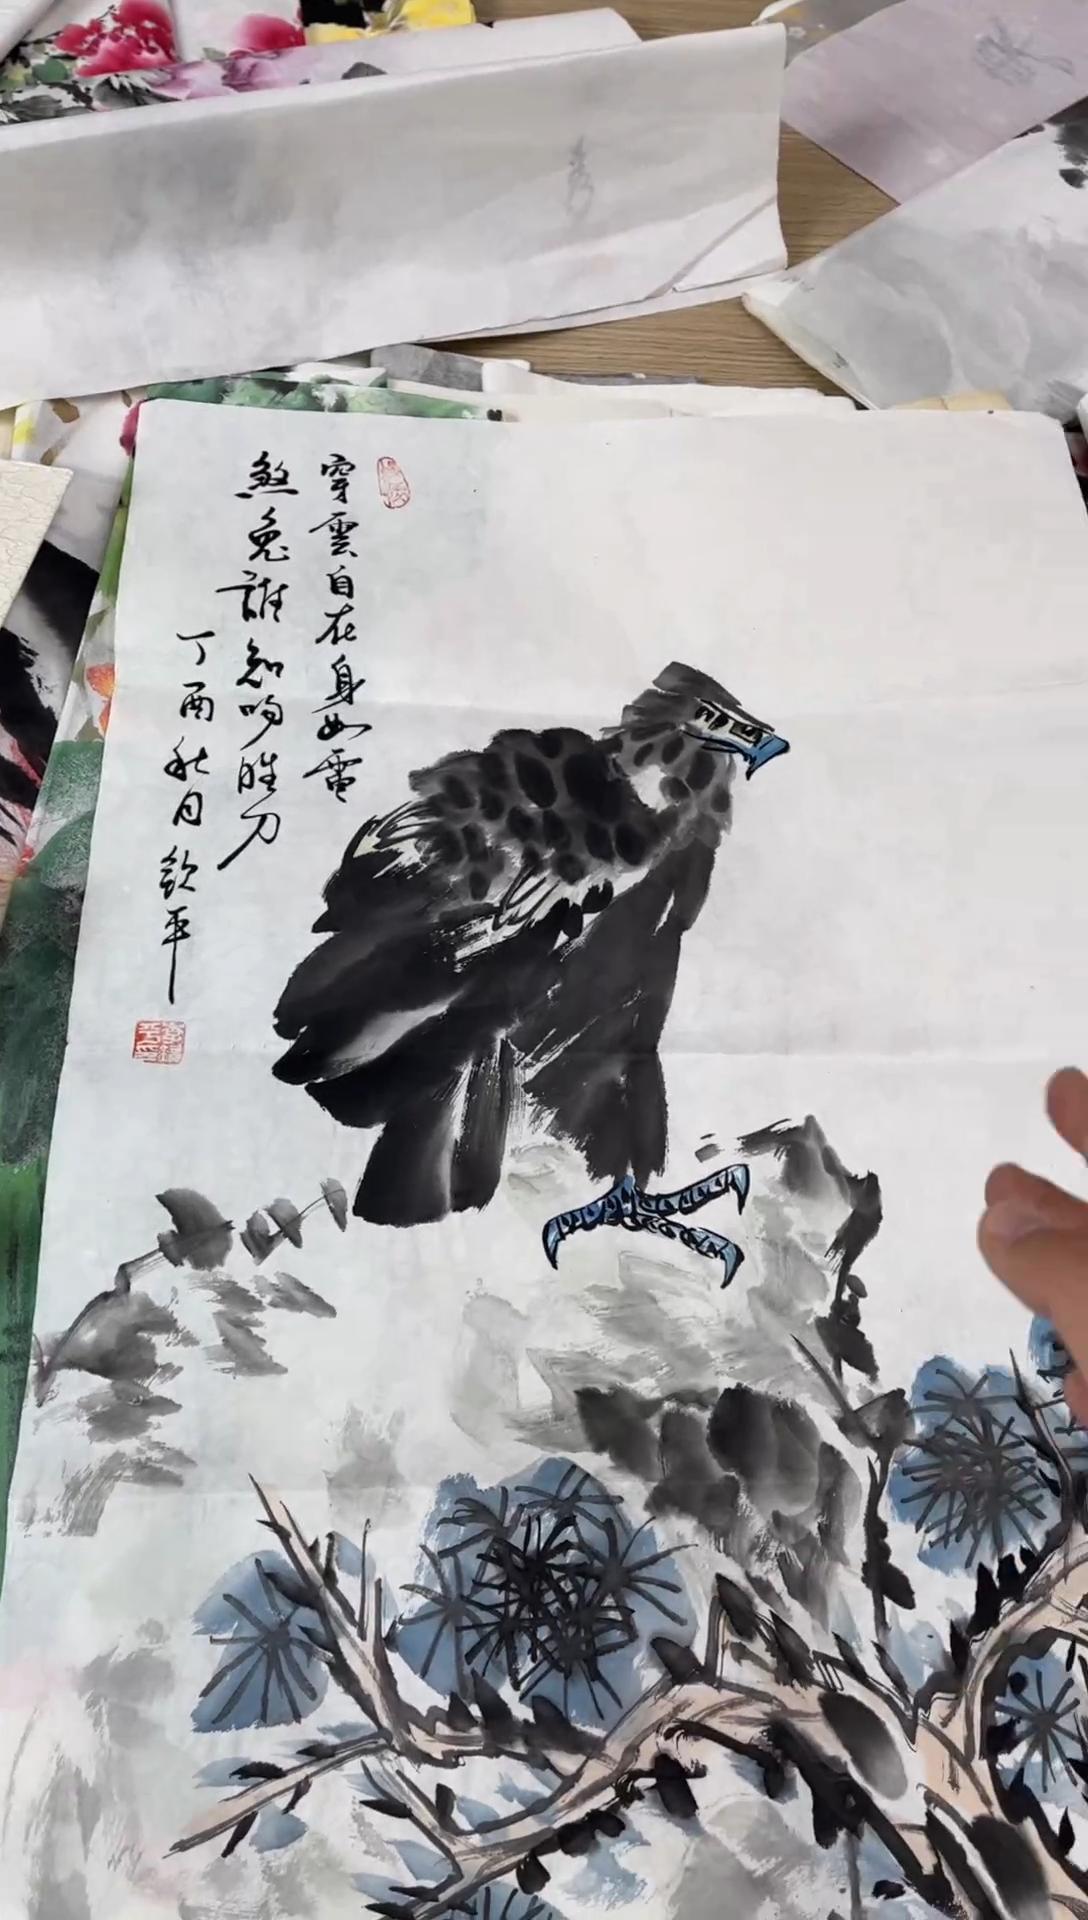 穿雲自在身如電
煞兔誰知吻勝刀
丁酉秋月欽平